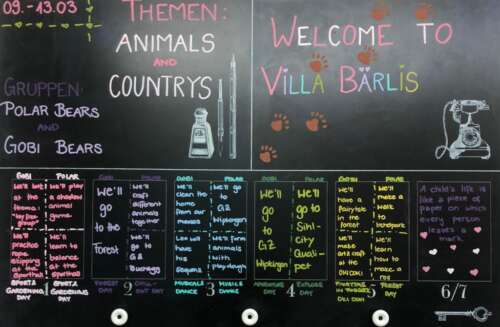 09.-13.03
THEMEN:
ANIMALS
AND
COUNTRYS
GRUPPEN:
POLAR BEARS
AND
GOBI BEARS
WELCOME TO
VILLA BÄRLIS
GOBI
POLAR
We'll play
a shadow
animal
game.
We'll
practice
rope
skipping
at the
We'll
learn to
balance
at the
1
SPORT &
GARDENING
DAY
SPORT &
GARDENING
DAY
GOBI
POLAR
We'll
go
to the
Forest
We'll
craft
different
animals
together
We'll
go to
GZ
Buchegg
2
FOREST
DAY
DAY
GOBI
POLAR
We'll
clean the
home
from our
mouses
We'll
go to
GZ
Wipkingen
will have
his
We'll form
animals
with
playdough
3
MUSICAL &
DANCE
MUSICAL &
DANCE
GOBI
POLAR
We'll
go
to
GZ
Wipkingen
We'll
go to
Sihl-
city
4
ADVENTURE
DAY
EXPLORE
DAY
GOBI
POLAR
We'll
have a
fairytale
in the
forest
We'll
make a
walk
to
We'll
make
and craft
at the
We'll
learn
how to
make a
5
DAY
A child's life is
like a piece of
paper on which
every person
leaves a
mark.
6/7